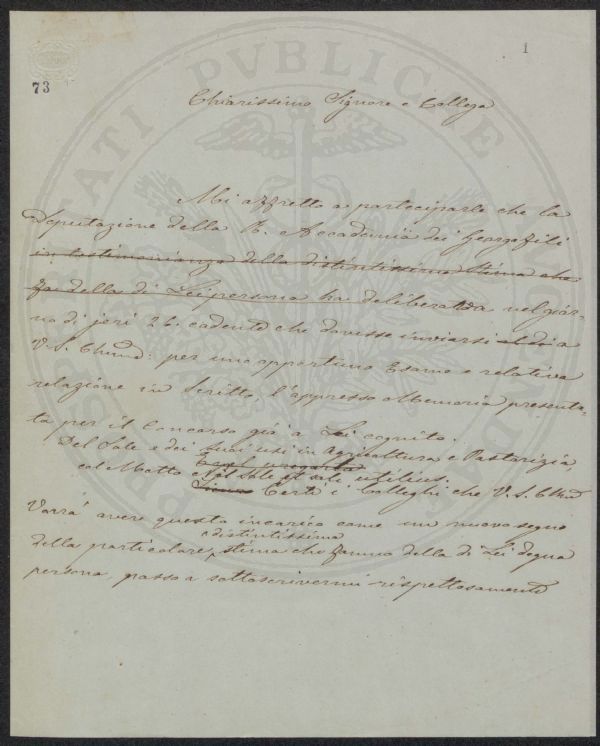 1
73
Chiarissimo Signore e Collega
Mi affretto a parteciparle che la
Deputazione della R. Accademia dei Georgofili
in testimonianza della distintissima stima che
fa della di Lei persona ha deliberato nel gior-
no di jeri 26. cadente che dovesse inviarsi a
V. S. Chma: per un opportuno Esame e relativa
relazione in Scritto, l'appresso Memoria presenta-
ta per il Concorso già a Lei cognito.
Del Sale e dei suoi usi in Agricoltura e Pastorizia
col Motto e sole et sale utilius.
Certi i Colleghi che V. S. Chma
Vorrà avere questo incarico come un nuovo segno
distintissima
della particolare stima che fanno della di Lei degna
persona, passo a sottoscrivermi rispettosamente
PROSPERITATI PVBLICAE AVGENDAE